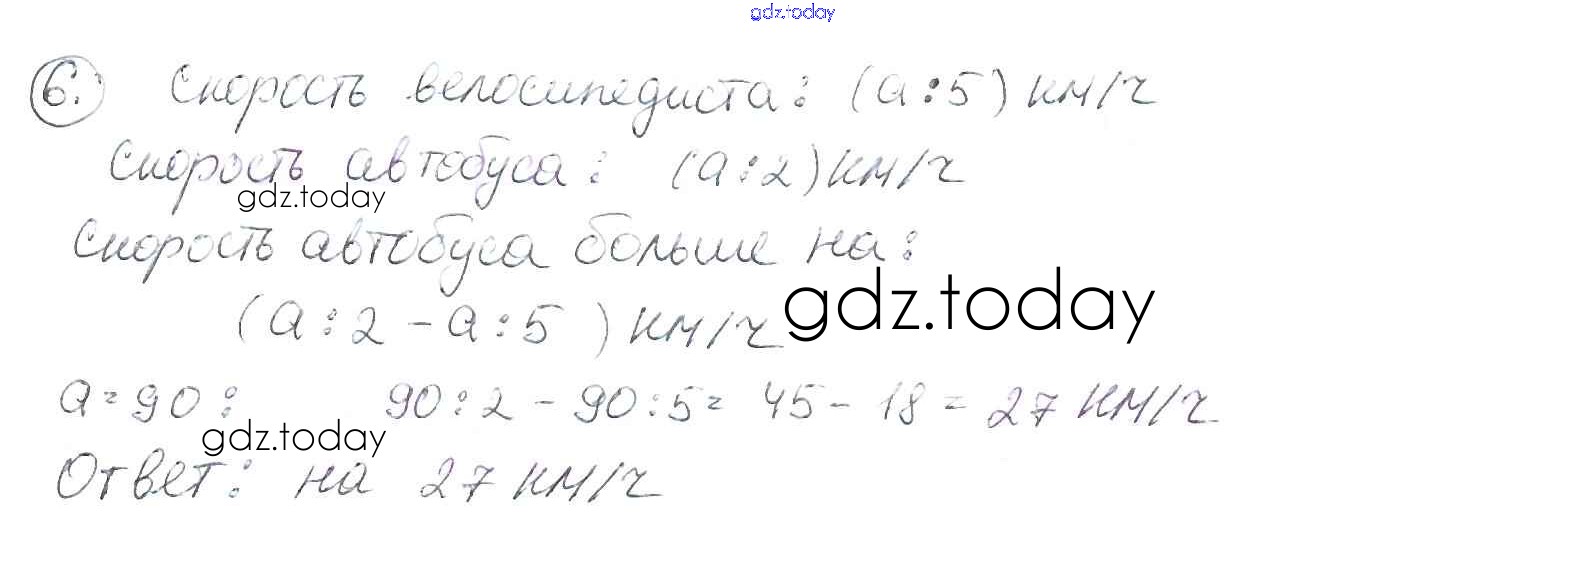 gdz.today
6. Скорость велосипедиста: (а:5) км/ч
Скорость автобуса: (а:2) км/ч
gdz.today
Скорость автобуса больше на:
(а:2 - а:5) км/ч
gdz.today
а=90: 90:2 - 90:5 = 45 - 18 = 27 км/ч
gdz.today
Ответ: на 27 км/ч